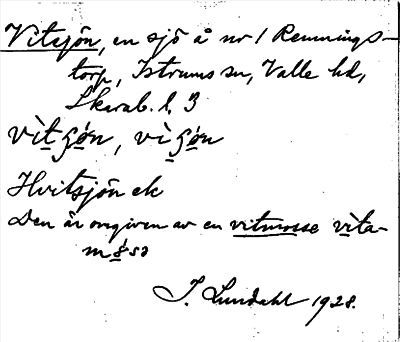 Vitsjön, en sjö å nr 1 Remnings-
torp, Istrums sn, Valle hd,
Skarab. l. 3
Hvitsjön ek
Den är omgiven av en vitmosse vita-
I. Lundahl 1928.